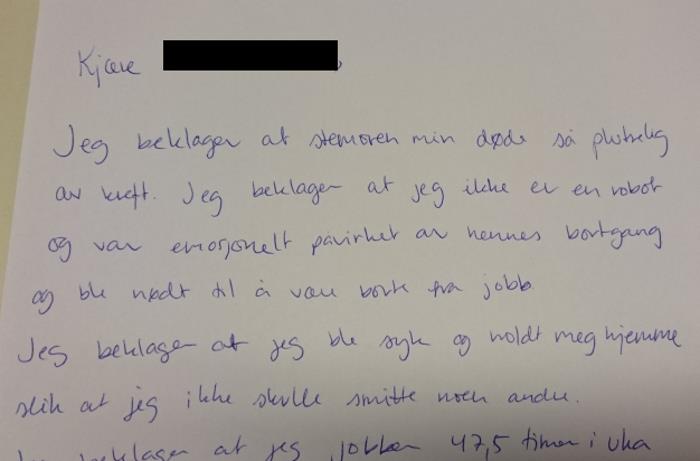 Kjære
Jeg beklager at stemoren min døde så plutselig
av kreft. Jeg beklager at jeg ikke er en robot
og var emosjonelt påvirket av hennes bortgang
og ble nødt til å være borte fra jobb.
Jeg beklager at jeg ble syk og holdt meg hjemme
slik at jeg ikke skulle smitte noen andre.
beklager at jeg jobber 47,5 timer i uka